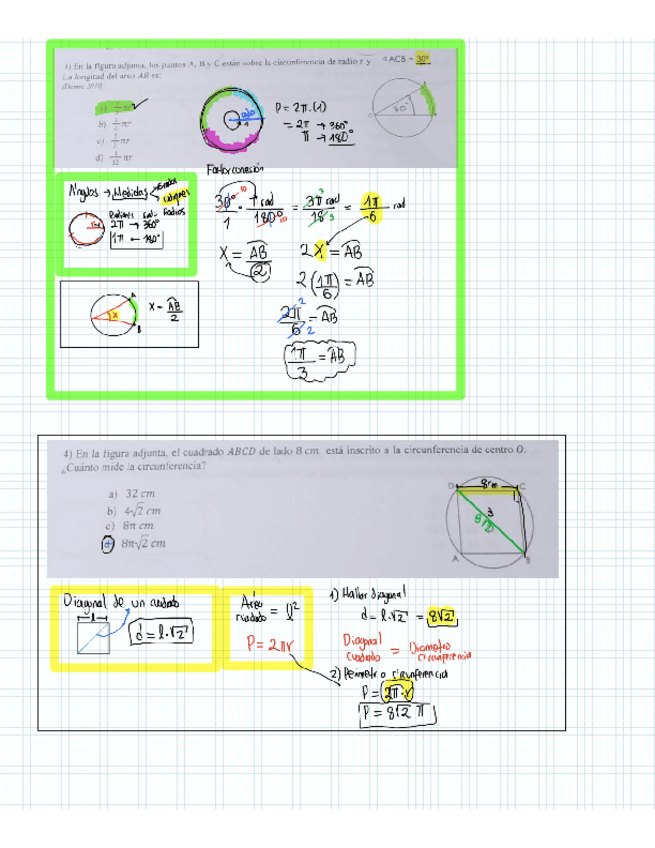 3) En la figura adjunta, los puntos A, B y C están sobre la circunferencia de radio r y ∢ACB = 30°
La longitud del arco AB es:
(Demre 2010)
b)
c)
d) πr
30°
P = 2π·(1)
= 2π → 360°
π → 180°
Ángulos → Medidas
Grados
radianes
Radianes rad. Radios
2π → 360°
1π ← 180°
30°/1 · π rad/180° = 3π rad/18 = 1π/6 rad
X = AB/2
2X = AB
2(1π/6) = AB
2π/6 = AB
1π/3 = AB
A
x
B
X = AB/2
4) En la figura adjunta, el cuadrado ABCD de lado 8 cm está inscrito a la circunferencia de centro O.
¿Cuánto mide la circunferencia?
a) 32 cm
b) 4√2 cm
c) 8π cm
8π√2 cm
D 8cm C
8√2
A B
Diagonal de un cuadrado
l
d = l·√2
Área cuadrado = l²
P = 2πr
1) Hallar diagonal
d = l·√2 = 8√2
Diagonal cuadrado = Diametro circunferencia
2) Perimetro circunferencia
P = 2π·r
P = 8√2 π